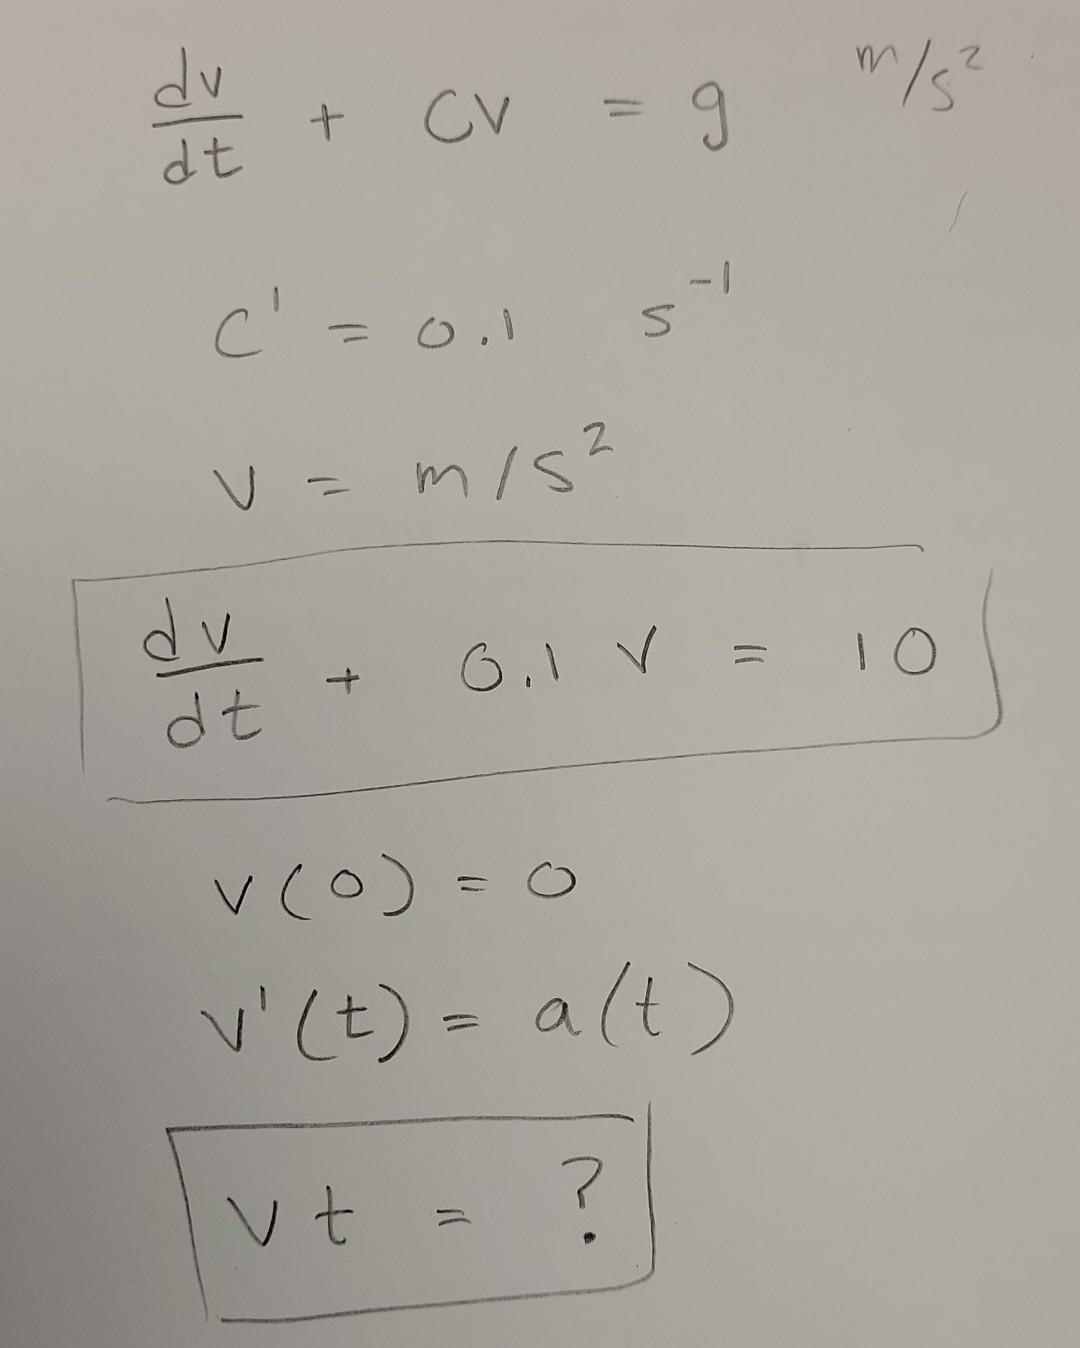 dv/dt + cv = g m/s²
c' = 0.1 s⁻¹
v = m/s²
dv/dt + 0.1 v = 10
v(0) = 0
v'(t) = a(t)
vt = ?